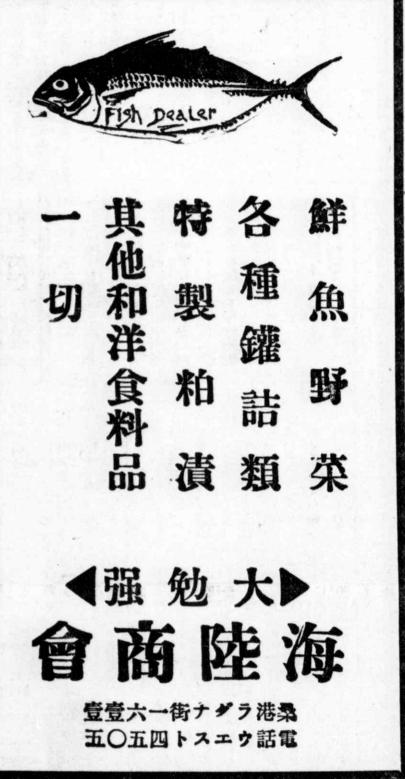 Fish Dealer
鮮魚野菜
各種鑵詰類
特製粕漬
其他和洋食料品
一切
▶大勉强◀
海陸商會
桑港ラグナ街一六壹壹
電話ウエスト四五〇五